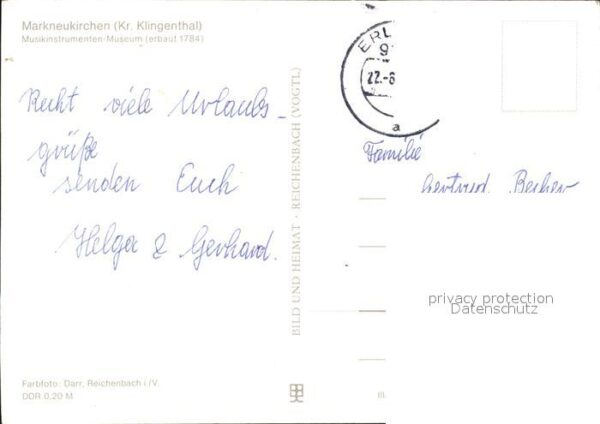 Markneukirchen (Kr. Klingenthal)
Musikinstrumenten-Museum (erbaut 1784)
Recht viele Urlaubs-
grüße
senden Euch
Helga & Gerhard.
Farbfoto: Darr, Reichenbach i./V.
DDR 0,20 M
BILD UND HEIMAT · REICHENBACH (VOGTL)
ERL
9
22.-6
a
Familie
Gertrud Becher
privacy protection
Datenschutz
III